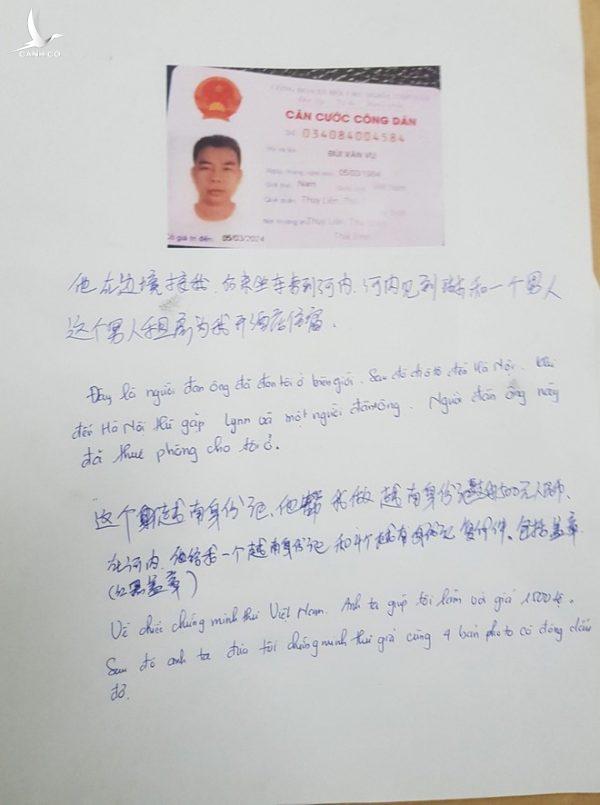 CANHCO
CĂN CƯỚC CÔNG DÂN
Số 034084004584
BÙI VĂN VỤ
05/03/1984
Nam Việt Nam
Thụy Liên, Th
Thụy Liên,
Có giá trị đến: 05/03/2024
他在边境接我，后来坐车看到河内，河内见到 和一个男人
这个男人租房为我开酒店住宿。
Đây là người đàn ông đã đón tôi ở biên giới. Sau đó chở tôi đến Hà Nội. Khi
đến Hà Nội thì gặp Lynn và một người đàn ông. Người đàn ông này
đã thuê phòng cho tôi ở.
这个 越南身份证，他帮我做越南身份证 500元人民币，
在河内，他给我一个越南身份证和4个越南身份证复件件。包括盖章
(红黑盖章)
Về chiếc chứng minh thư Việt Nam. Anh ta giúp tôi làm với giá 1500 tệ.
Sau đó anh ta đưa tôi chứng minh thư giả cùng 4 bản photo có đóng dấu
đỏ.